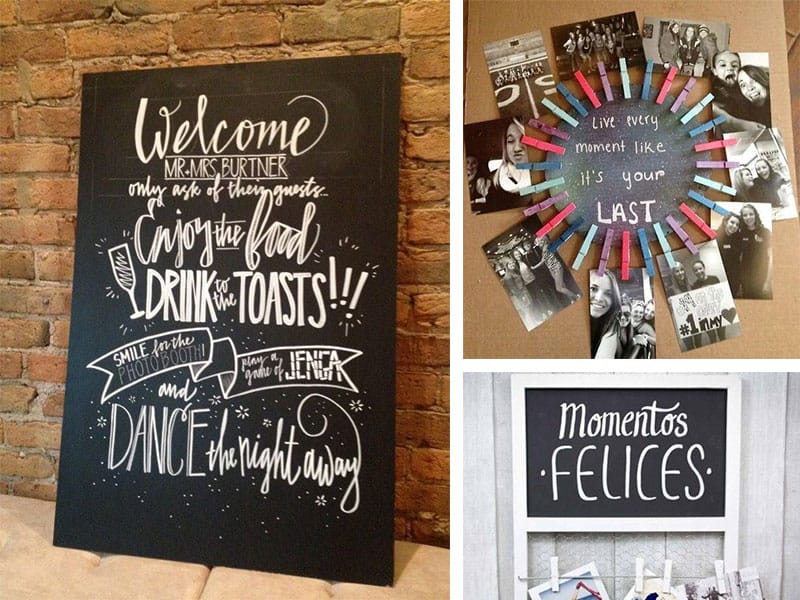 Welcome
MR. & MRS. BURTNER
only ask of their guests...
Enjoy the food
DRINK to the TOASTS!!!
SMILE for the PHOTO BOOTH!
play a game of JENGA
and
DANCE the night away
Live every
moment like
it's your
LAST
#1 in my
Momentos
·FELICES·